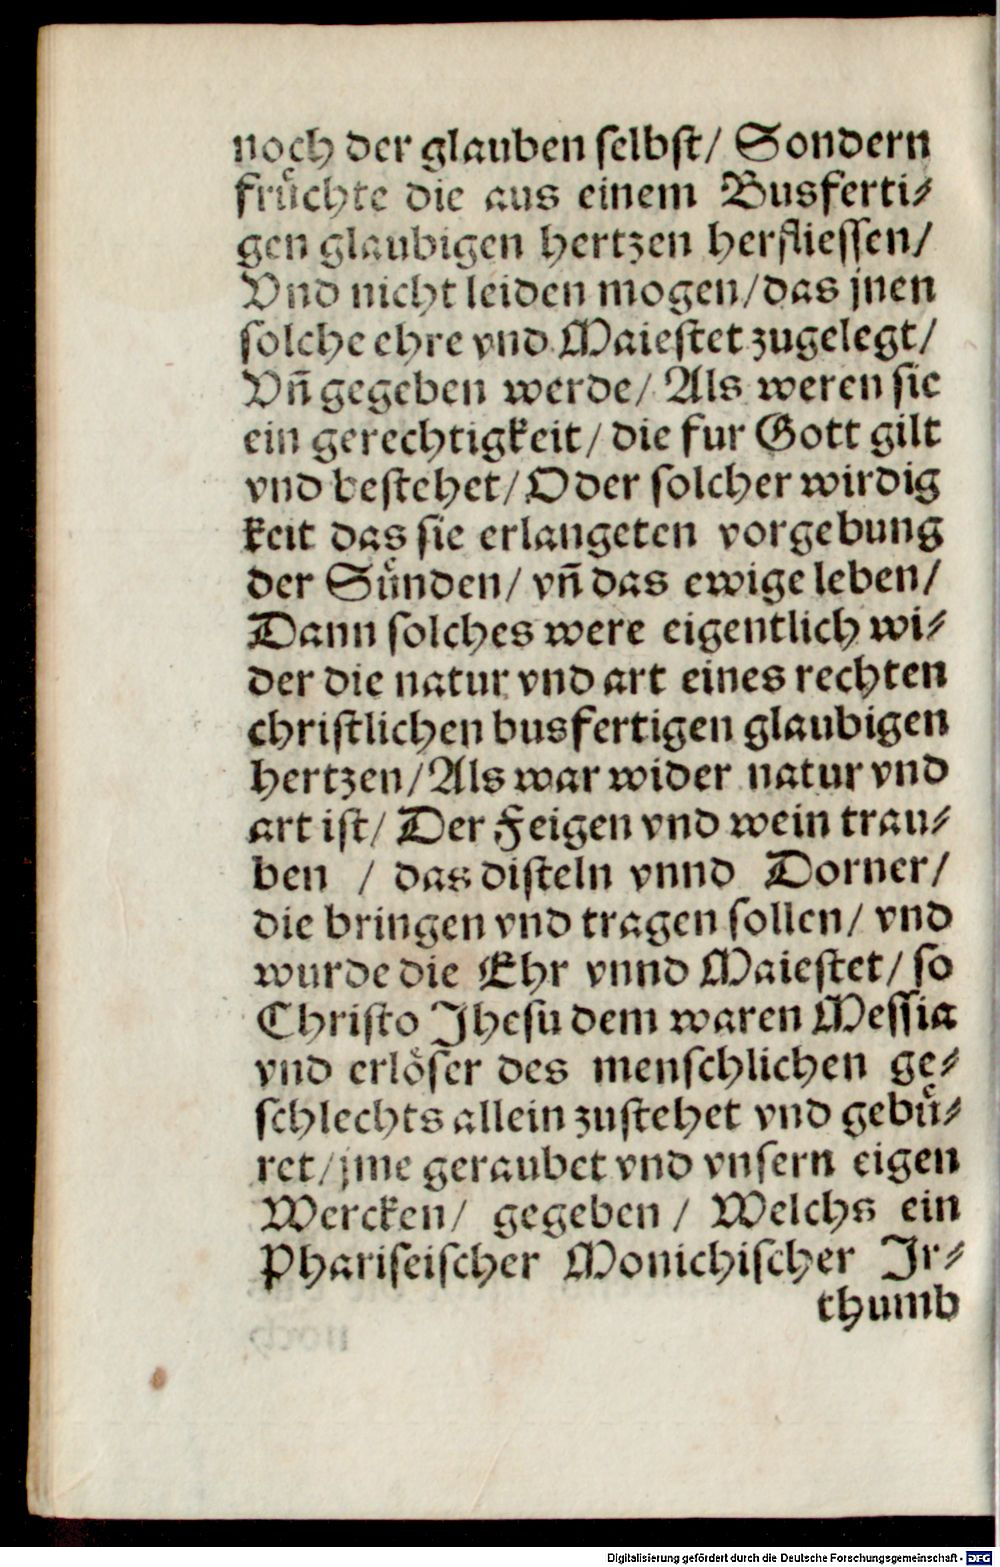 noch der glauben ſelbſt/ Sondern
fruͤchte die aus einem Busferti⸗
gen glaubigen hertzen herflieſſen/
Vnd nicht leiden mogen/das jnen
ſolche ehre vnd Maieſtet zugelegt/
Vñ gegeben werde/ Als weren ſie
ein gerechtigkeit/ die fur Gott gilt
vnd beſtehet/ Oder ſolcher wirdig
keit das ſie erlangeten vorgebung
der Suͤnden/ vñ das ewige leben/
Dann ſolches were eigentlich wi⸗
der die natur vnd art eines rechten
chriſtlichen busfertigen glaubigen
hertzen/Als war wider natur vnd
art iſt/ Der Feigen vnd wein trau⸗
ben / das diſteln vnnd Dorner/
die bringen vnd tragen ſollen/ vnd
wurde die Ehr vnnd Maieſtet/ ſo
Chriſto Jheſu dem waren Meſſia
vnd erloͤſer des menſchlichen ge⸗
ſchlechts allein zuſtehet vnd gebuͤ⸗
ret/jme geraubet vnd vnſern eigen
Wercken/ gegeben / Welchs ein
Phariſeiſcher Monichiſcher Jr⸗
thumb
Digitalisierung gefördert durch die Deutsche Forschungsgemeinschaft - DFG